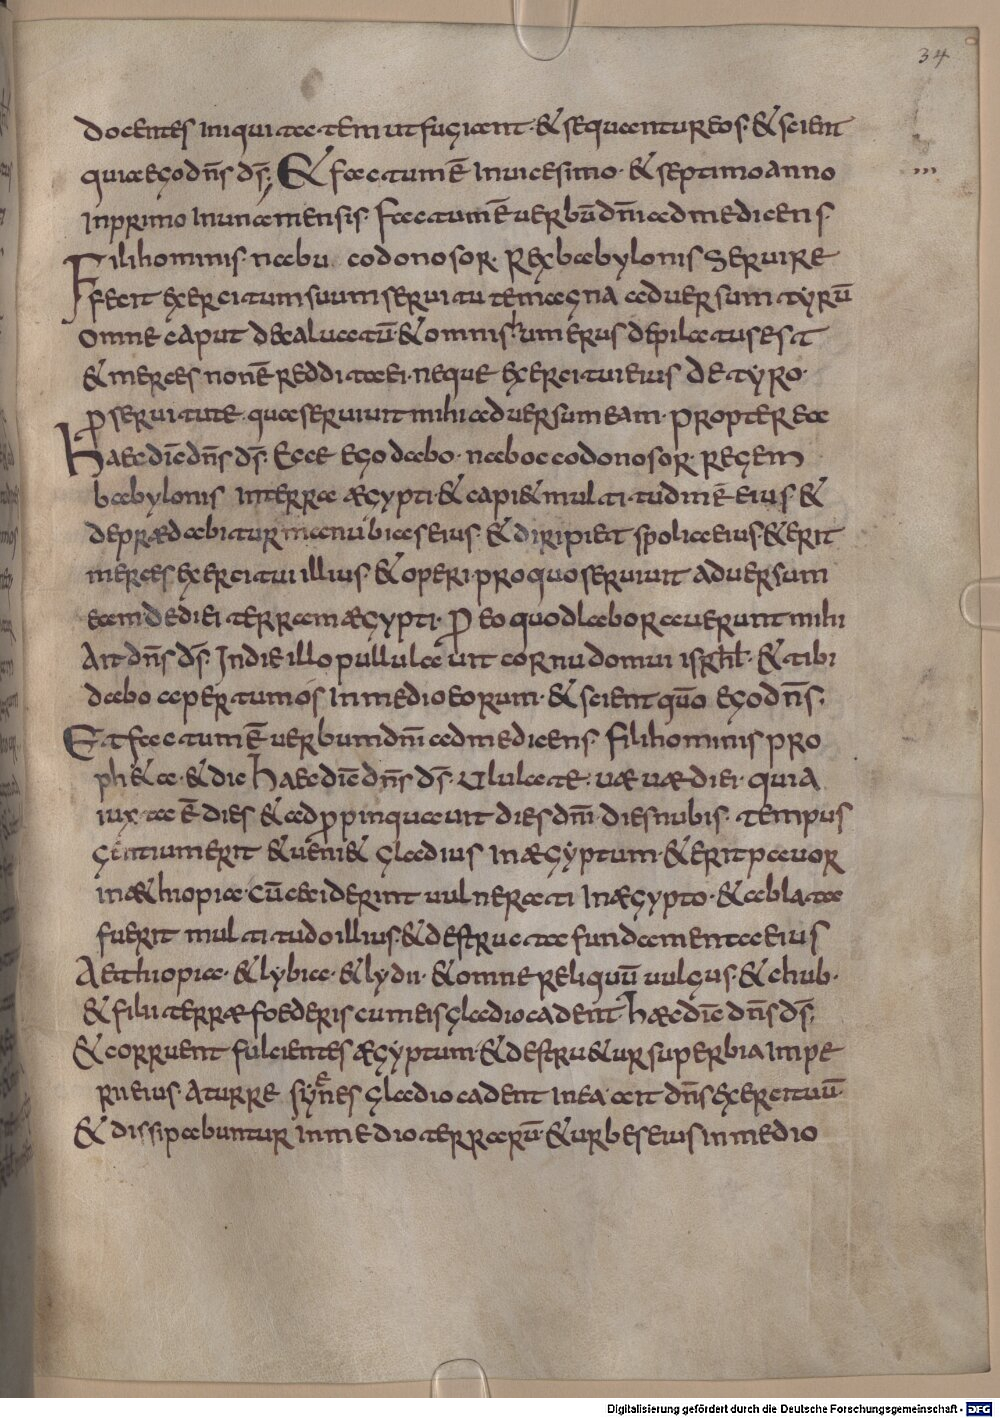 34
docentes iniquitatem ut fugiant · & sequantur eos · & scient
quia ego dn̄s ds̄; & factum ē in uicesimo · & septimo anno
in primo in una mensis · factum ē uerbū dn̄i ad me dicens ·
Fili hominis · nabu codonosor · rex babylonis seruire
fecit exercitum suum seruitutem agna aduersum tyrū
omne caput decaluatū · & omnis humerus depilatus est
& merces non ē reddita ei · neque exercitui eius de tyro ·
p̄ seruitute · qua seruiuit mihi aduersum eam · propterea
haec dic̄ dn̄s ds̄ · Ecce ego dabo · naboccodonosor · regem
babylonis in terra ægypti · & capi& multitudinē eius · &
deprædabitur manubias eius · & diripiet spolia eius · & erit
merces exercitui illius · & operi · pro quo seruiuit aduersum
eam dedi ei terram ægypti · p̄ eo quod laborauerunt mihi
Ait dn̄s ds̄ · In die illo pullulauit cornu domui isrh̄l · & tibi
dabo apertum os in medio eorum · & scient quō ego dn̄s ·
Et factum ē uerbum dn̄i ad me dicens · fili hominis pro
ph&a · & dic haec dic̄ dn̄s ds̄ · Ululate · uæ uæ diei · quia
iuxta ē dies & adp̄pinquauit dies dn̄i · dies nubis · tempus
gentium erit & ueni& gladius in ægyptum · & erit pauor
in æthiopia · cū ceciderint uulnerati in ægypto · & ablata
fuerit multitudo illius · & destructa fundamenta eius
Aethiopia · & lybia · & lydii · & omne reliquū uulgus · & chub ·
& filii terræ foederis cum eis gladio cadent · haec dic̄ dn̄s ds̄;
& corruent fulcientes ægyptum · & destru&ur superbia impe
rii eius · A turre synes gladio cadent in ea · ait dn̄s exercituū ·
& dissipabuntur in medio terrarū · & urbes eius in medio
Digitalisierung gefördert durch die Deutsche Forschungsgemeinschaft - DFG